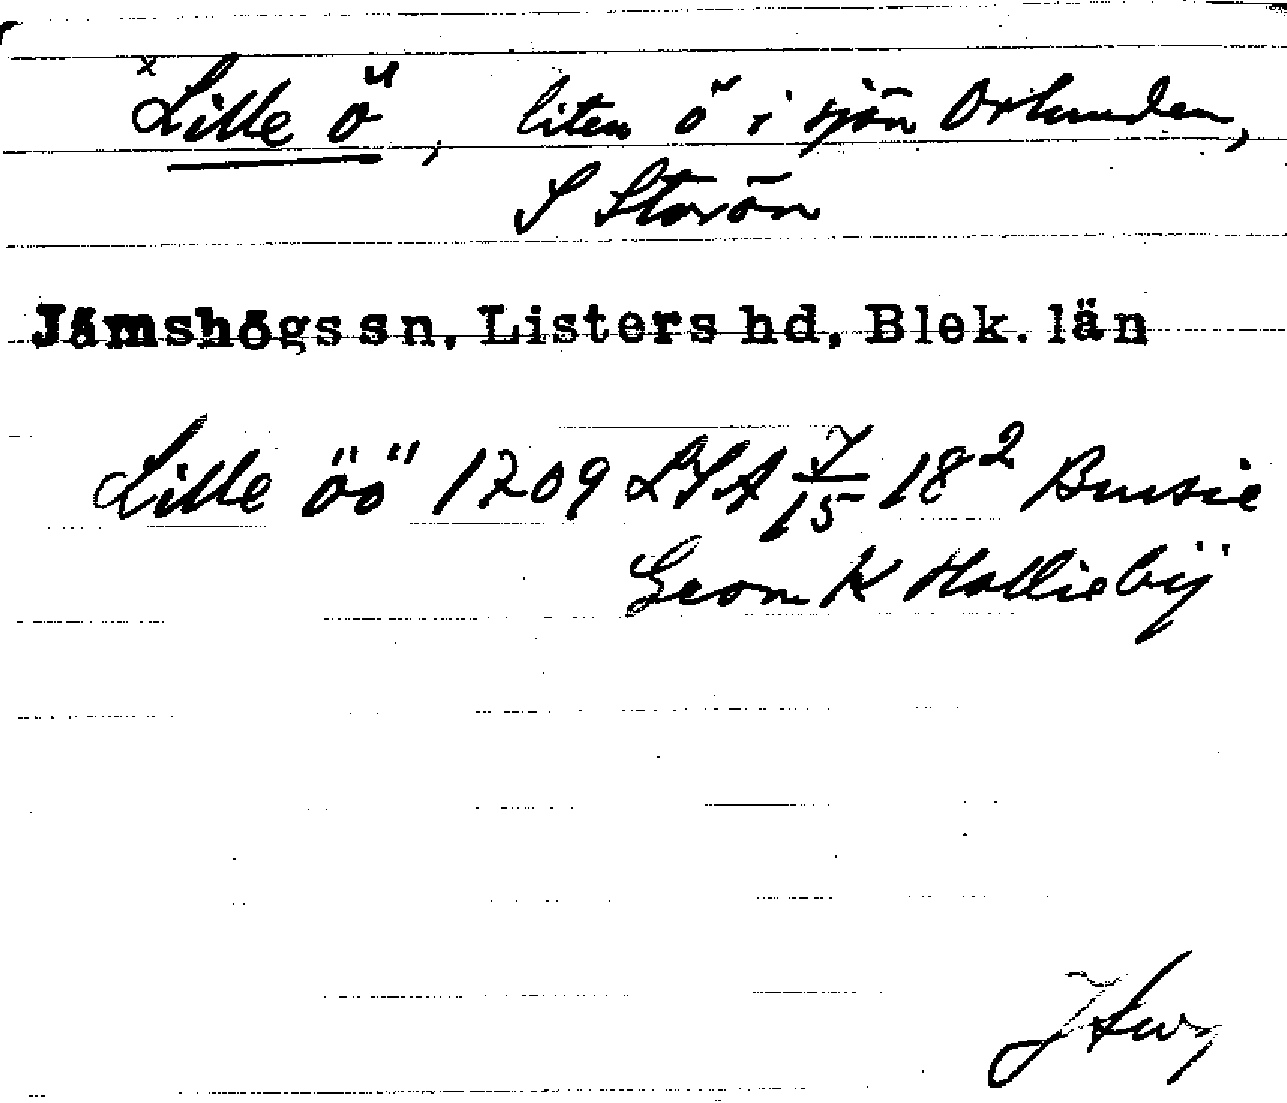 x Lille ö, liten ö i sjön Orlunden,
S Storön
Jämshögs sn, Listers hd, Blek. län
Lille öö 1709 LSA 7/15 18² Bursie
Geom K Halliebÿ